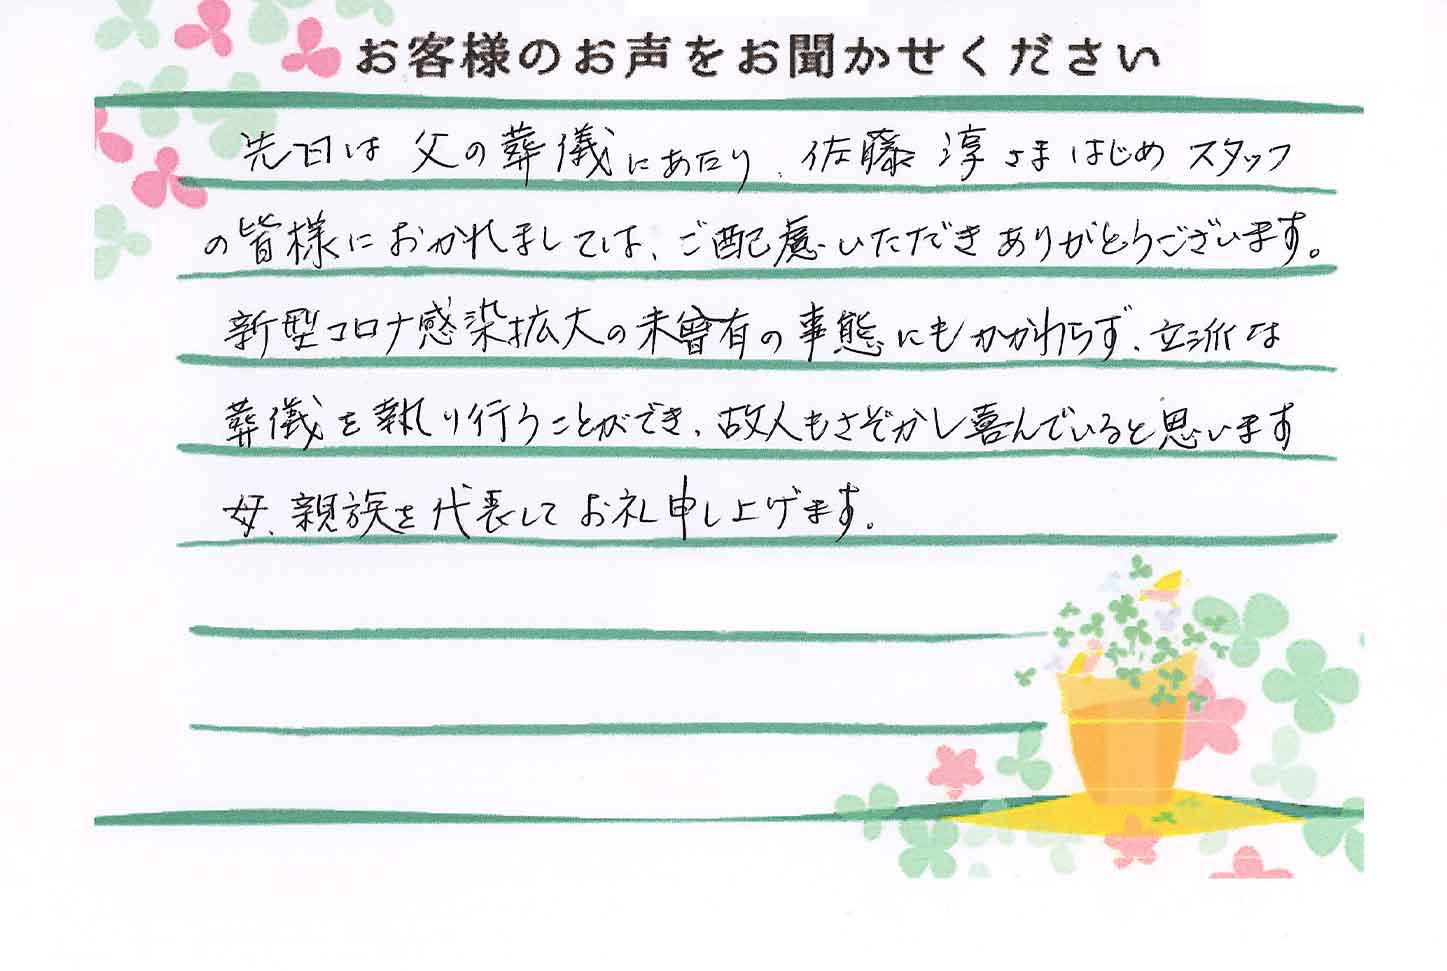 お客様のお声をお聞かせください
先日は 父の葬儀にあたり、佐藤 淳さまはじめ スタッフ
の皆様におかれましては、ご配慮いただきありがとうございます。
新型コロナ感染拡大の未曾有の事態にもかかわらず、立派な
葬儀を執り行うことができ、故人もさぞかし喜んでいると思います
母、親族を代表してお礼申し上げます。